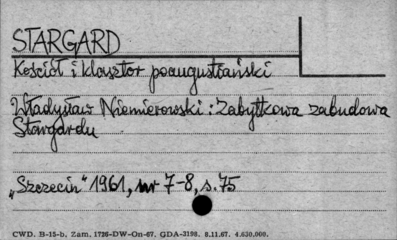 STARGARD
Kościół i klasztor poaugustiański
Władysław Niemierowski: Zabytkowa zabudowa
Stargardu
„Szczecin" 1961, nr 7-8, s. 75
CWD. B-15-b, Zam. 1736-DW-On-67. GDA-3198. 8.11.67. 4.630.000.